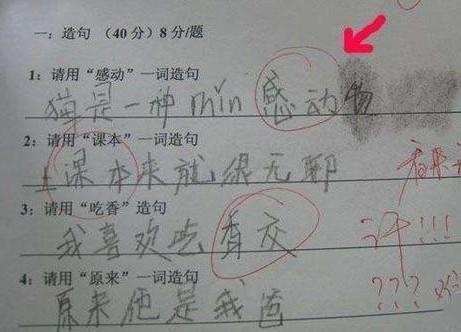 一：造句 （40 分）8 分/题
1：请用“感动”一词造句
猫是一种 min 感动物
2：请用“课本”一词造句
上课本来就很无聊
看来
3：请用“吃香”造句
我喜欢吃香交
汗!!!
4：请用“原来”一词造句
???
原来他是我爸